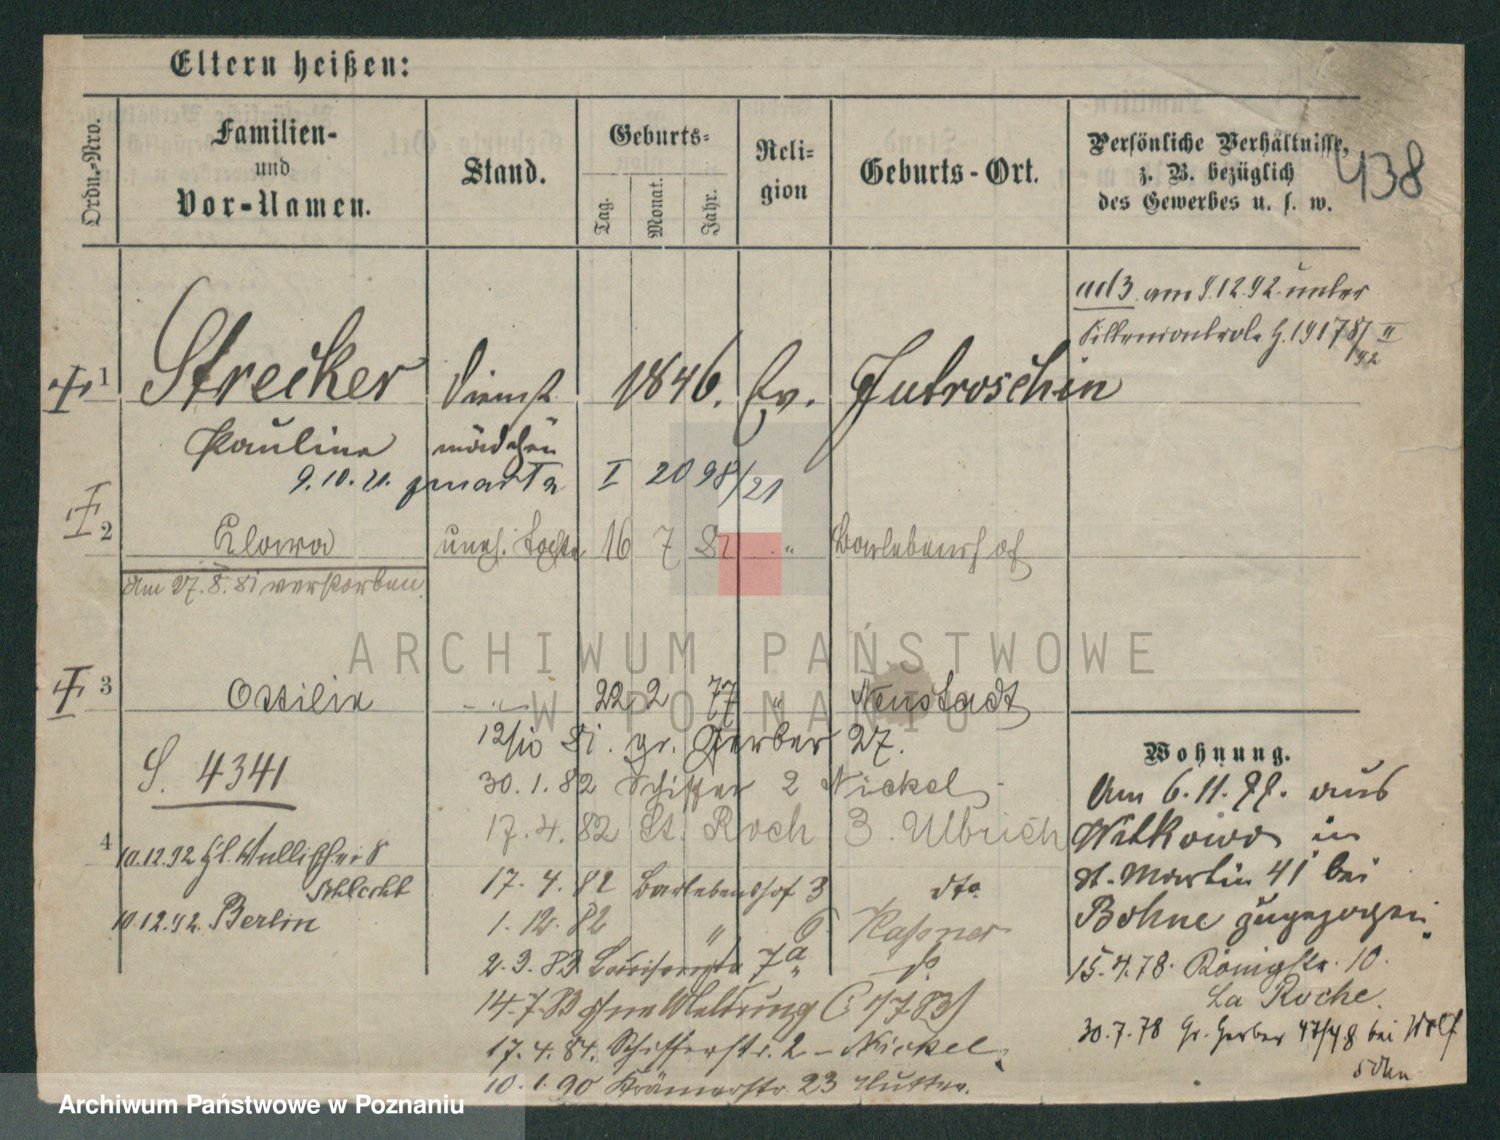 Eltern heißen:
Ordn.-Nro.
Familien-
und
Vor-Namen.
Stand.
Geburts-
Tag.
Monat.
Jahr.
Reli-
gion
Geburts-Ort.
Persönliche Verhältnisse,
z. B. bezüglich
des Gewerbes u. s. w.
438
ad 3 am 9.12.92 unter
1 Strecker Dienst 1846. Ev. Jutroschin
Pauline mädchen
9.10.21. I 2098/21
2 uneh. Tochter 16 7 81 " Bartebenshof
Am 27.8.81 verstorben.
3 Ottilie " 22 2 77 " Neustadt
12/10 81. gr. Gerber 27.
S. 4341
30.1.82 Schiffer 2 Nickel
17.4.82 St. Roch 3. Ulbrich
4
10.12.92
17.4.82 Bartebenshof 3 dto
10.12.92. Berlin
1.12.82 " 6 Kassner
2.3.83 7a do
14.7.83 ohne Meldung
17.4.84. Schifferstr. 2 - Nickel
10.1.90 Krämerstr. 23
Wohnung.
Am 6.11.77. aus
Witkowo in
St. Martin 41 bei
Bohne zugezogen.
15.4.78. Königstr. 10.
La Roche.
30.7.78 Gr. Gerber 47/48 bei Wolf
sohn
ARCHIWUM PAŃSTWOWE
W POZNANIU
Archiwum Państwowe w Poznaniu